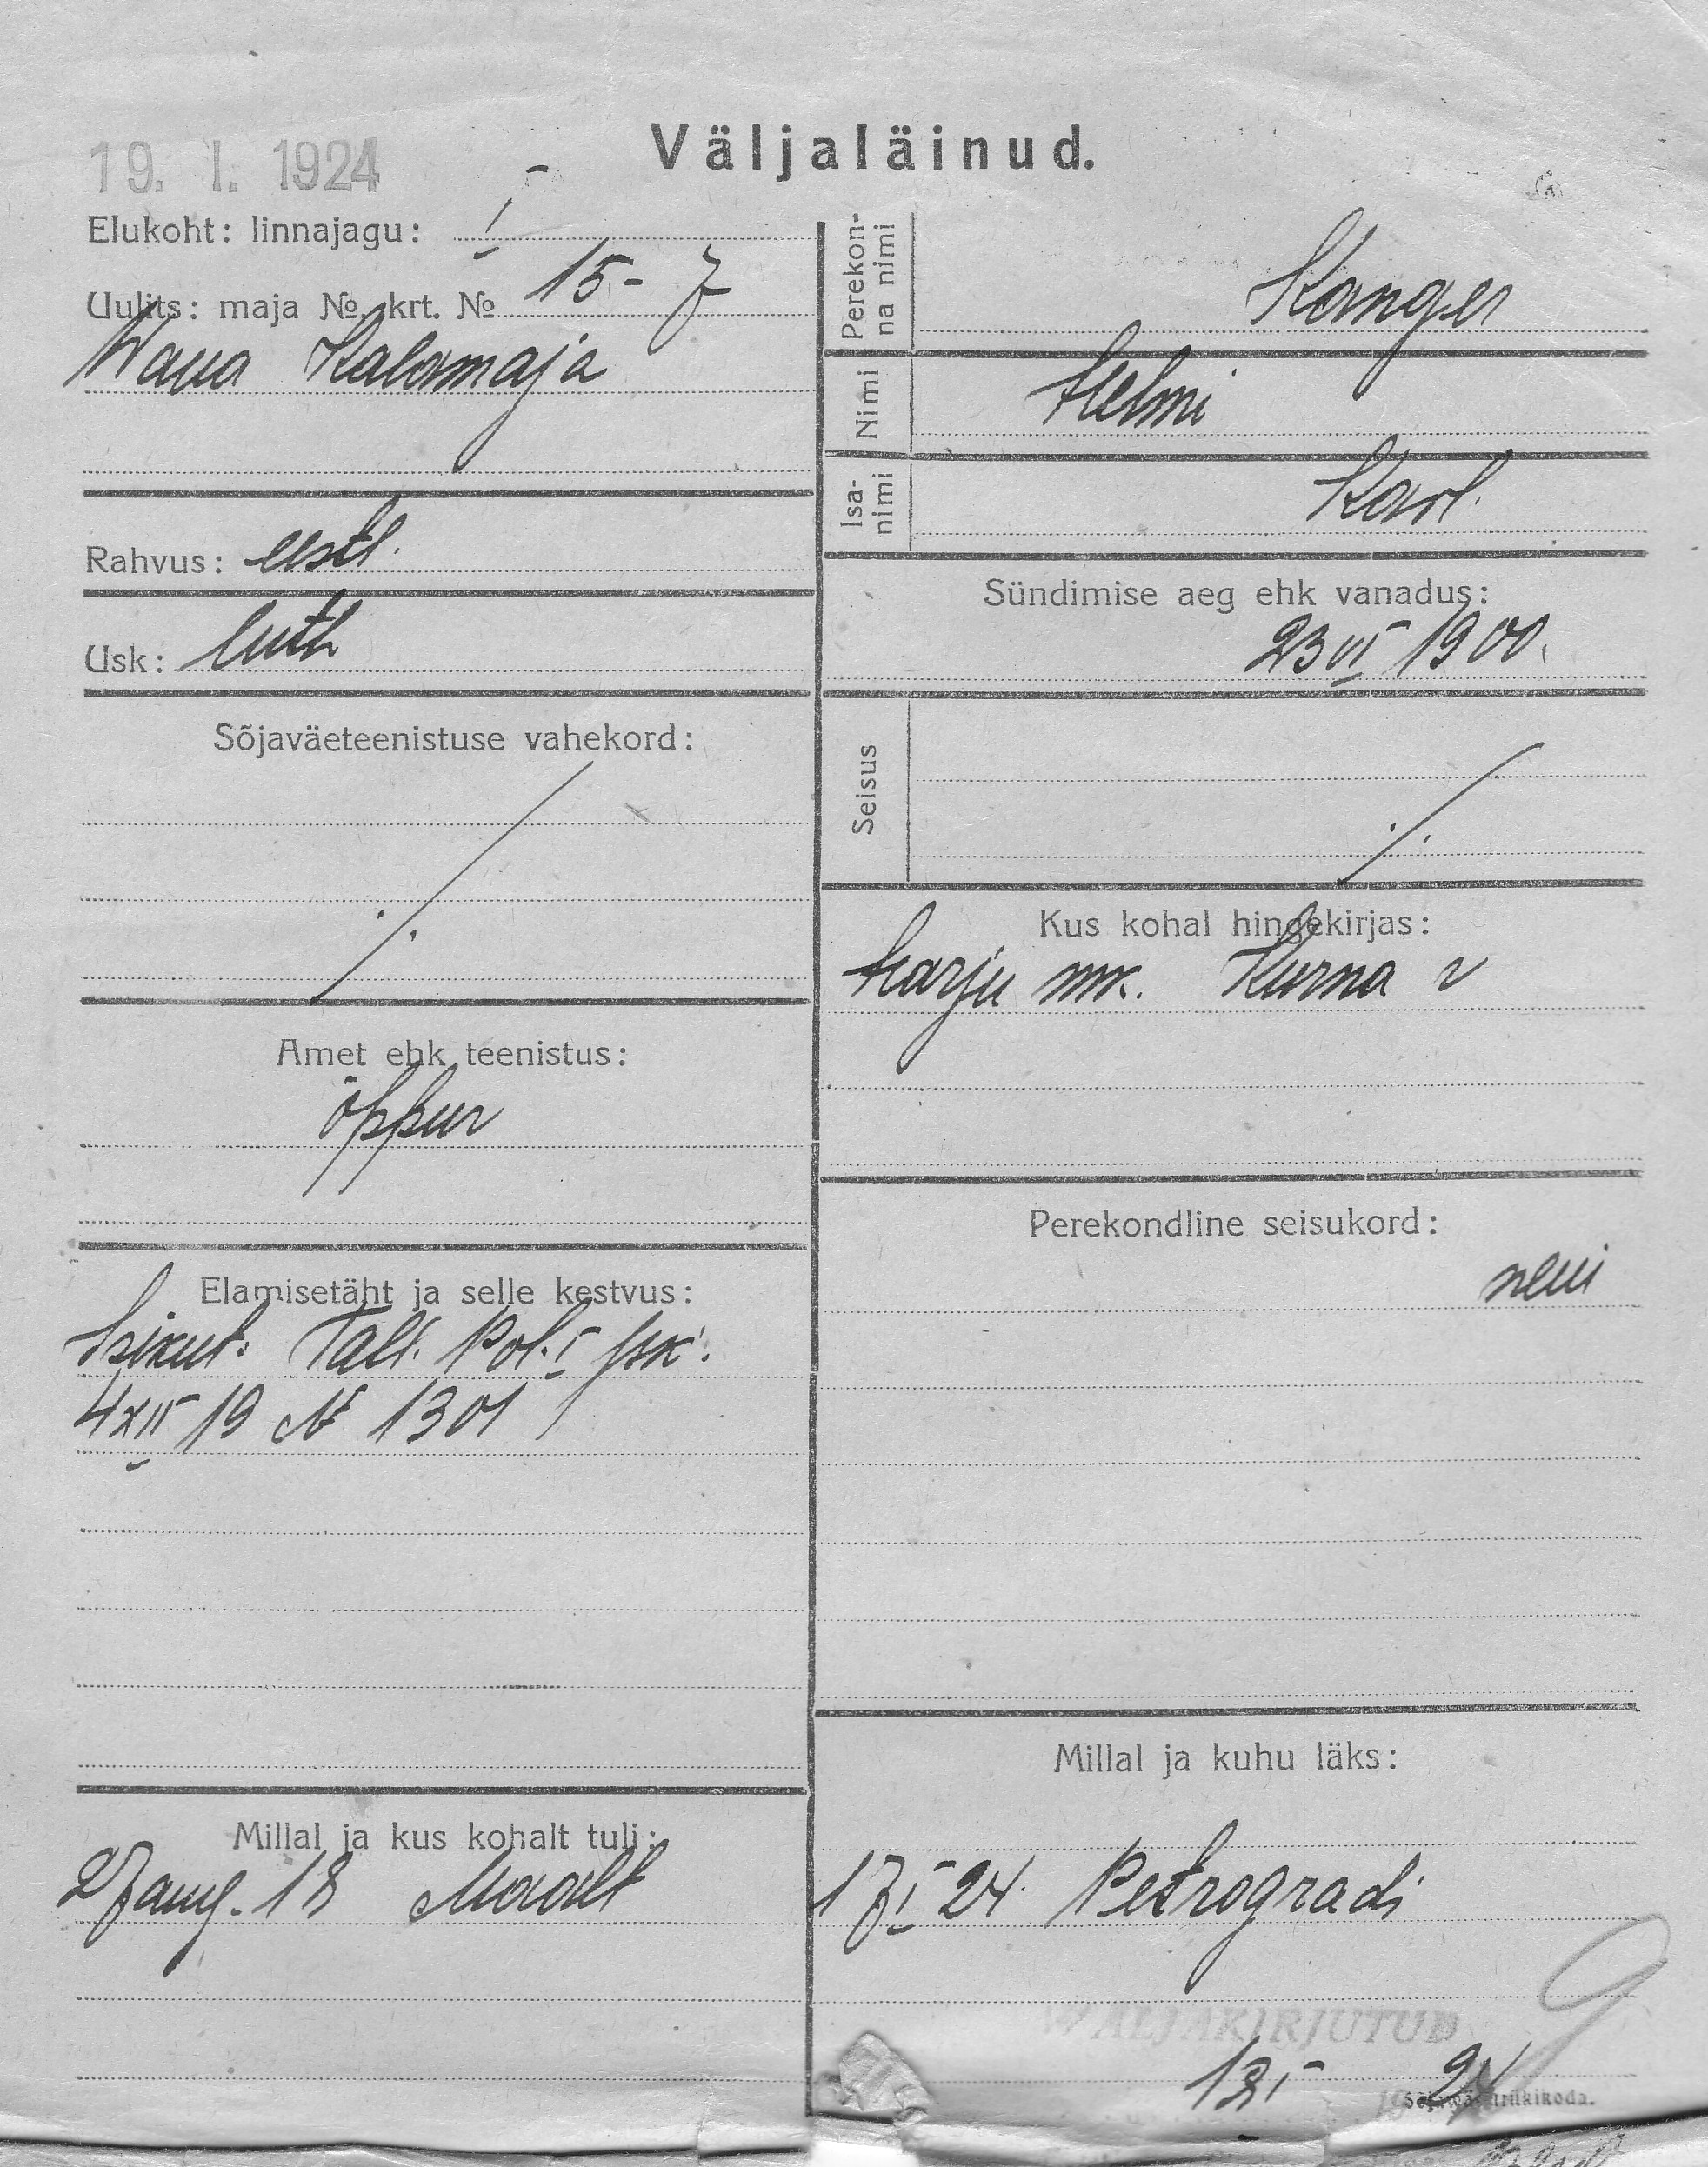 19. I. 1924
Väljaläinud.
Elukoht: linnajagu: I
Uulits: maja № krt. № 15 - 7
Wana Kalamaja
Rahvus: eestl.
Usk: luth
Sõjaväeteenistuse vahekord:
Amet ehk teenistus:
õppur
Elamisetäht ja selle kestvus:
Isikut: Tall. Pol. I jsk.
4 XII 19 № 1301
Millal ja kus kohalt tuli:
27 aug. 18 Maalt
Perekon-
na nimi
Kanger
Nimi
Helmi
Isa-
nimi
Karl.
Sündimise aeg ehk vanadus:
23 VI 1900.
Seisus
Kus kohal hingekirjas:
Harju mk. Kurna v
Perekondline seisukord:
neiu
Millal ja kuhu läks:
17 I 24. Petrogradi
WÄLJAKIRJUTUD
18 I 24